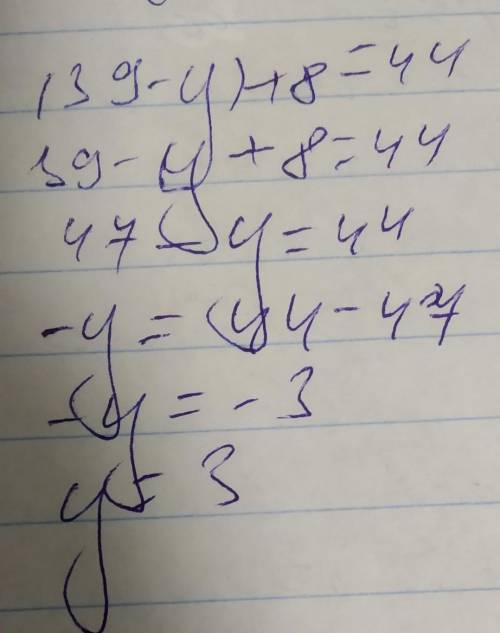 (39-y)+8=44
39-y+8=44
47-y=44
-y=44-47
-y=-3
y=3